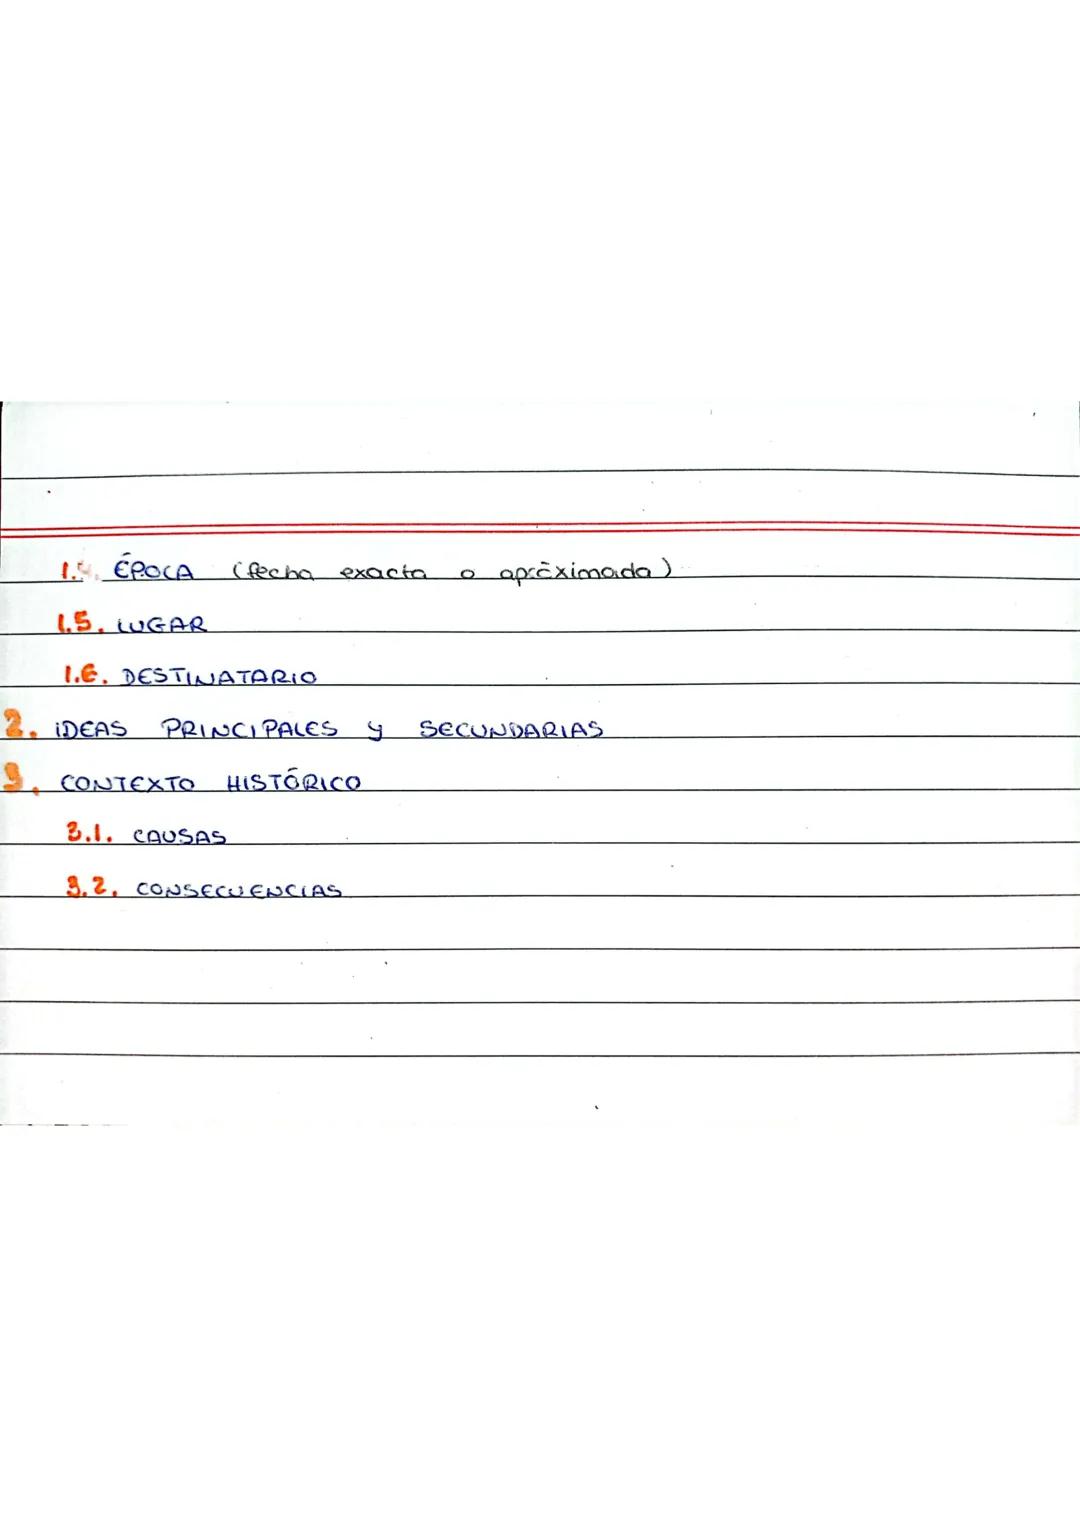 1.4. ÉPOCA (fecha exacta o aproximada)
1.5. LUGAR
1.6. DESTINATARIO
2. IDEAS PRINCIPALES y SECUNDARIAS
3. CONTEXTO HISTÓRICO
3.1. CAUSAS
3.2. CONSECUENCIAS